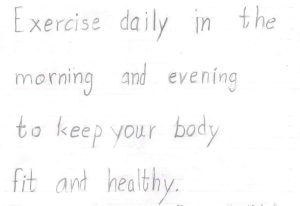 Exercise daily in the
morning and evening
to keep your body
fit and healthy.